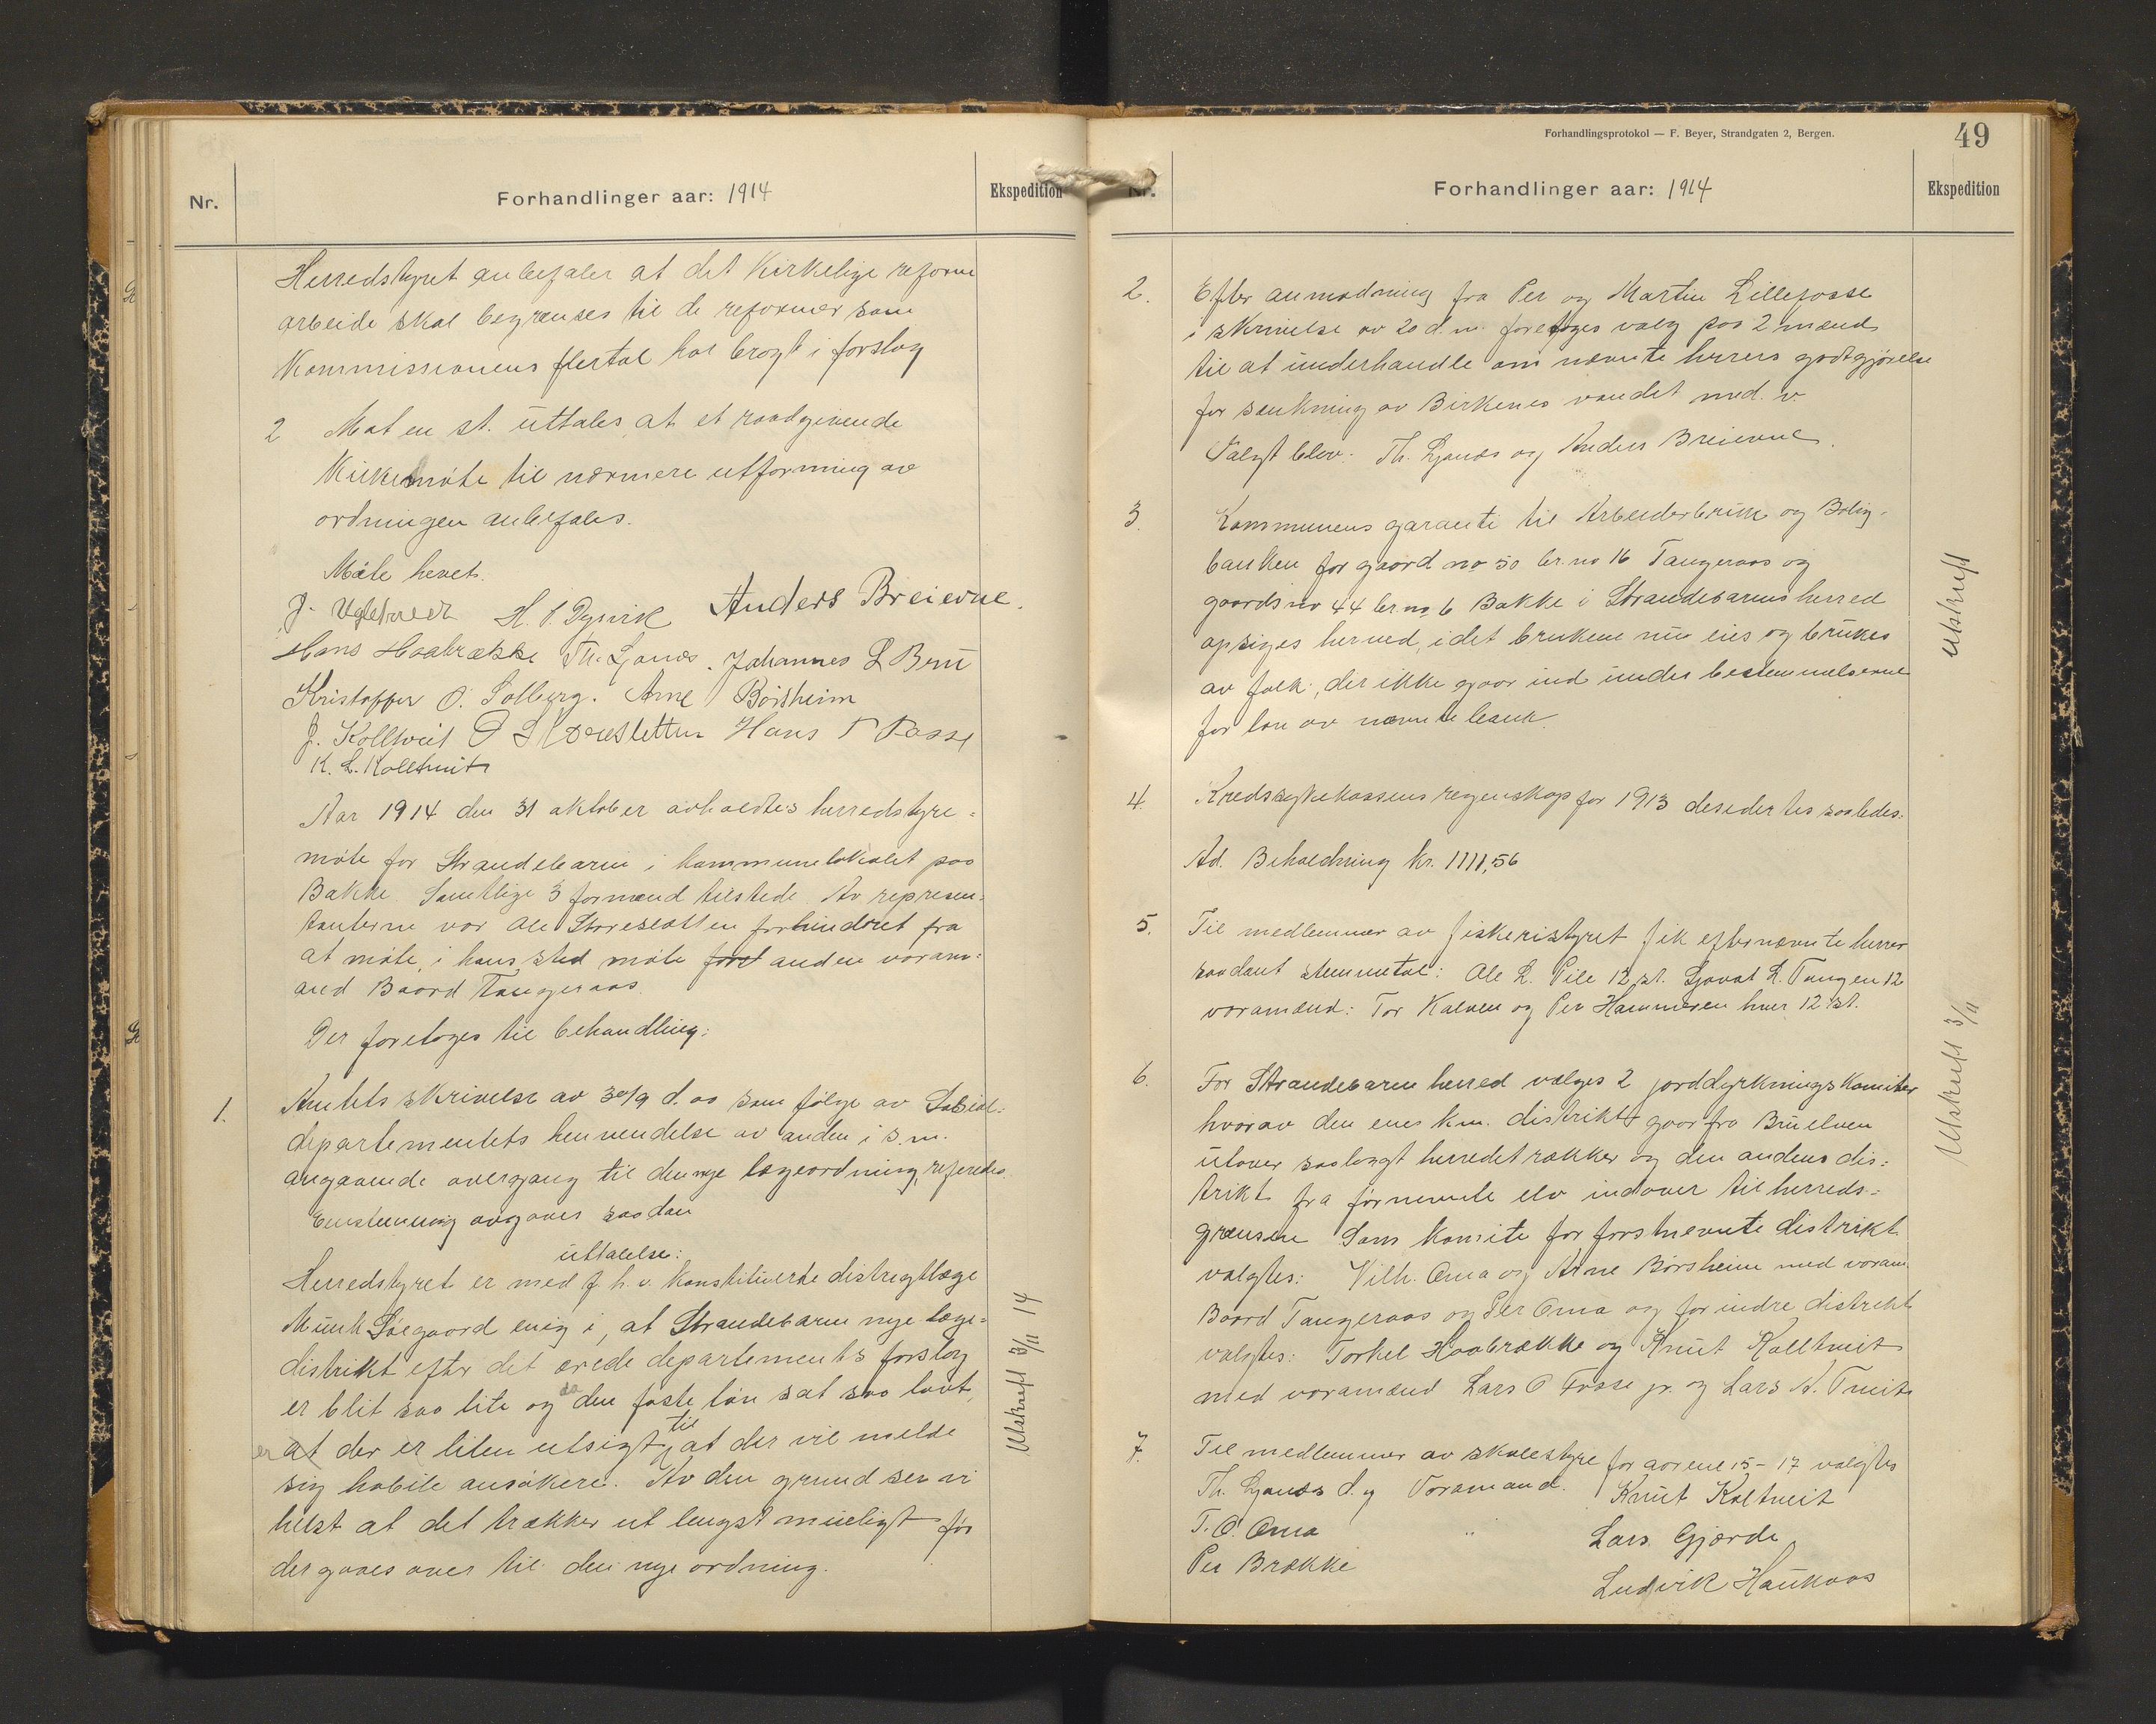 Nr.
Forhandlinger aar: 1914
Ekspedition
Herredstyret anbefaler at det Kirkelige reform
arbeide skal begrænses til de reformer som
Kommissionens flertal har bragt i forslag
2 Mot en st. uttales at et raadgivende
Kirkemøte til nærmere utforming av
ordningen anbefales.
Møte hevet.
H. S. Dysvik Anders Breievne.
Hans Haabrække Th. Ljones. Johannes L Bru
Kristoffer O. Solberg. Arne Börsheim
J. Kolltveit Hans Fosse
K. L. Kolltveit
Aar 1914 den 31 oktober avholdtes herredstyre-
møte for Strandebarm i kommunelokalet paa
Bakke. Samtlige 3 formænd tilstede. Av represen-
tanterne var Ole Storesletten forhindret fra
at møte, i hans sted møte anden varam-
and Baard Tangeraas.
Der foretoges til behandling:
1. Amtets skrivelse av 30/9 d. aa som følge av Social-
departementets henvendelse av anden i s.m.
angaaende overgang til den nye lægeordning, referedes.
Enstemmig avgaves saadan
uttalelse:
Herredstyret er med f. h. v. Konstituerte distrigtlæge
Munk Söegaard enig i, at Strandebarm nye læge-
distrikt efter det ærede departements forslag
er blit saa lite og da den faste løn sat saa lavt,
at der er liten utsigt til at der vil melde
sig habile ansøkere. Av den grund ser vi
helst at det trækker ut lengst mueligt før
der gaaes over til den nye ordning.
Utskrift 3/11 14
Forhandlingsprotokol — F. Beyer, Strandgaten 2, Bergen.
49
Nr.
Forhandlinger aar: 1914
Ekspedition
2. Efter anmodning fra Per og Martin Lillefosse
i skrivelse av 20 d.m. foretoges valg paa 2 mænd
til at underhandle om nævnte herrers godtgjörelse
for sænkning av Birkenes vandet med. v.
Valgt blev: Th. Ljones og Anders Breievne.
3. Kommunens garanti til Arbeiderbruk og Bolig-
banken for gaard no 50 br. no 16 Tangeraas og
gaards no 44 br no 6 Bakke i Strandebarms herred
opsiges herved, idet brukene nu eies og brukes
av folk, der ikke gaar ind under bestemmelserne
for lån av nævnte bank.
Utskrift
4. Kredssykekassens regenskap for 1913 desidertes saaledes.
Ad. Beholdning kr. 1111,56
5. Til medlemmer av fiskeristyret fik efternævnte herrer
saadant stemmetal: Ole L. Pile 12 st. Sjovat L. Tangen 12
varamænd: Tor Kalven og Per Hammeren hver 12 st.
6. For Strandebarm herred valges 2 jorddyrkningskomiteer
hvorav den enes km. distrikt gaar fra Bruelven
utover saalangt herredet rækker og den andens dis-
trikt fra førnevnte elv indover til herreds-
grænsen Som komite for forstnevnte distrikt
valgtes: Vilh. Oma og Arne Börsheim med varam.
Baard Tangeraas og Per Oma og for indre distrikt
valgtes: Torkel Haabrække og Knut Kolltveit
med varamænd Lars O Fosse jr. og Lars N. Tveit
Utskrift 3/11
7. Til medlemmer av skolestyre for aarene 15-17 valgtes
Th. Ljones d.y Varamand. Knut Koltveit
T. O. Oma " Lars Gjerde
Per Brække Ludvik Haukaas